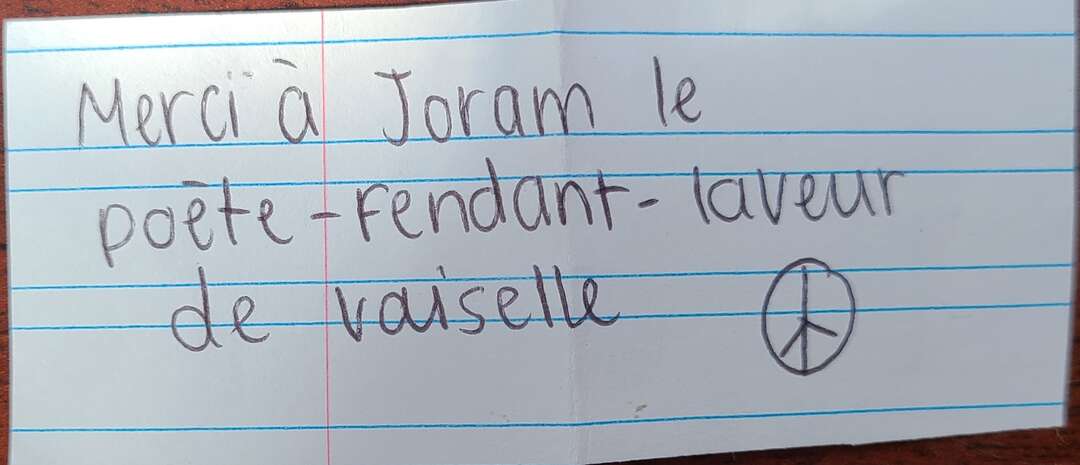 Merci à Joram le
poète-rendant-laveur
de vaiselle